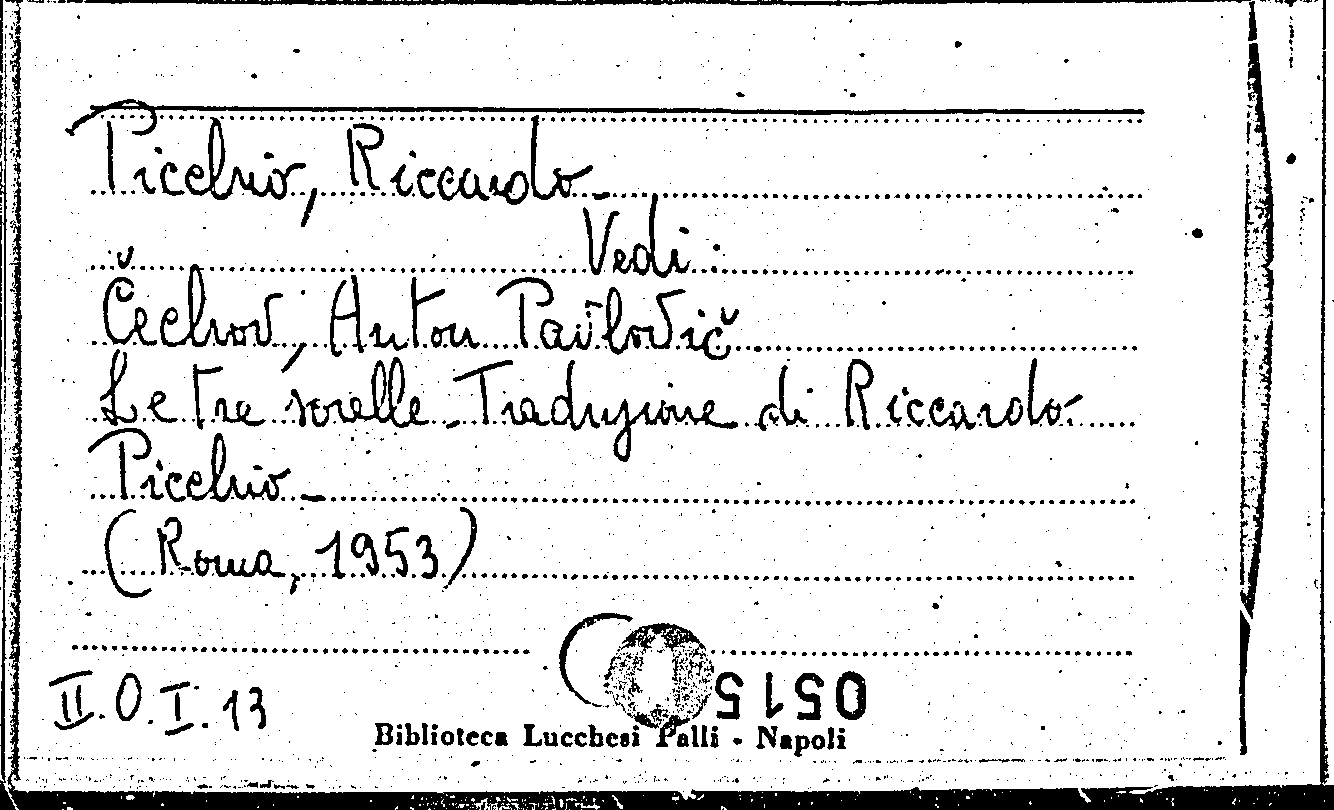 Picchio, Riccardo -
Vedi:
Čechov, Anton Pavlovič
Le tre sorelle - Traduzione di Riccardo
Picchio -
(Roma, 1953)
II.O.I.13
Biblioteca Lucchesi Palli - Napoli